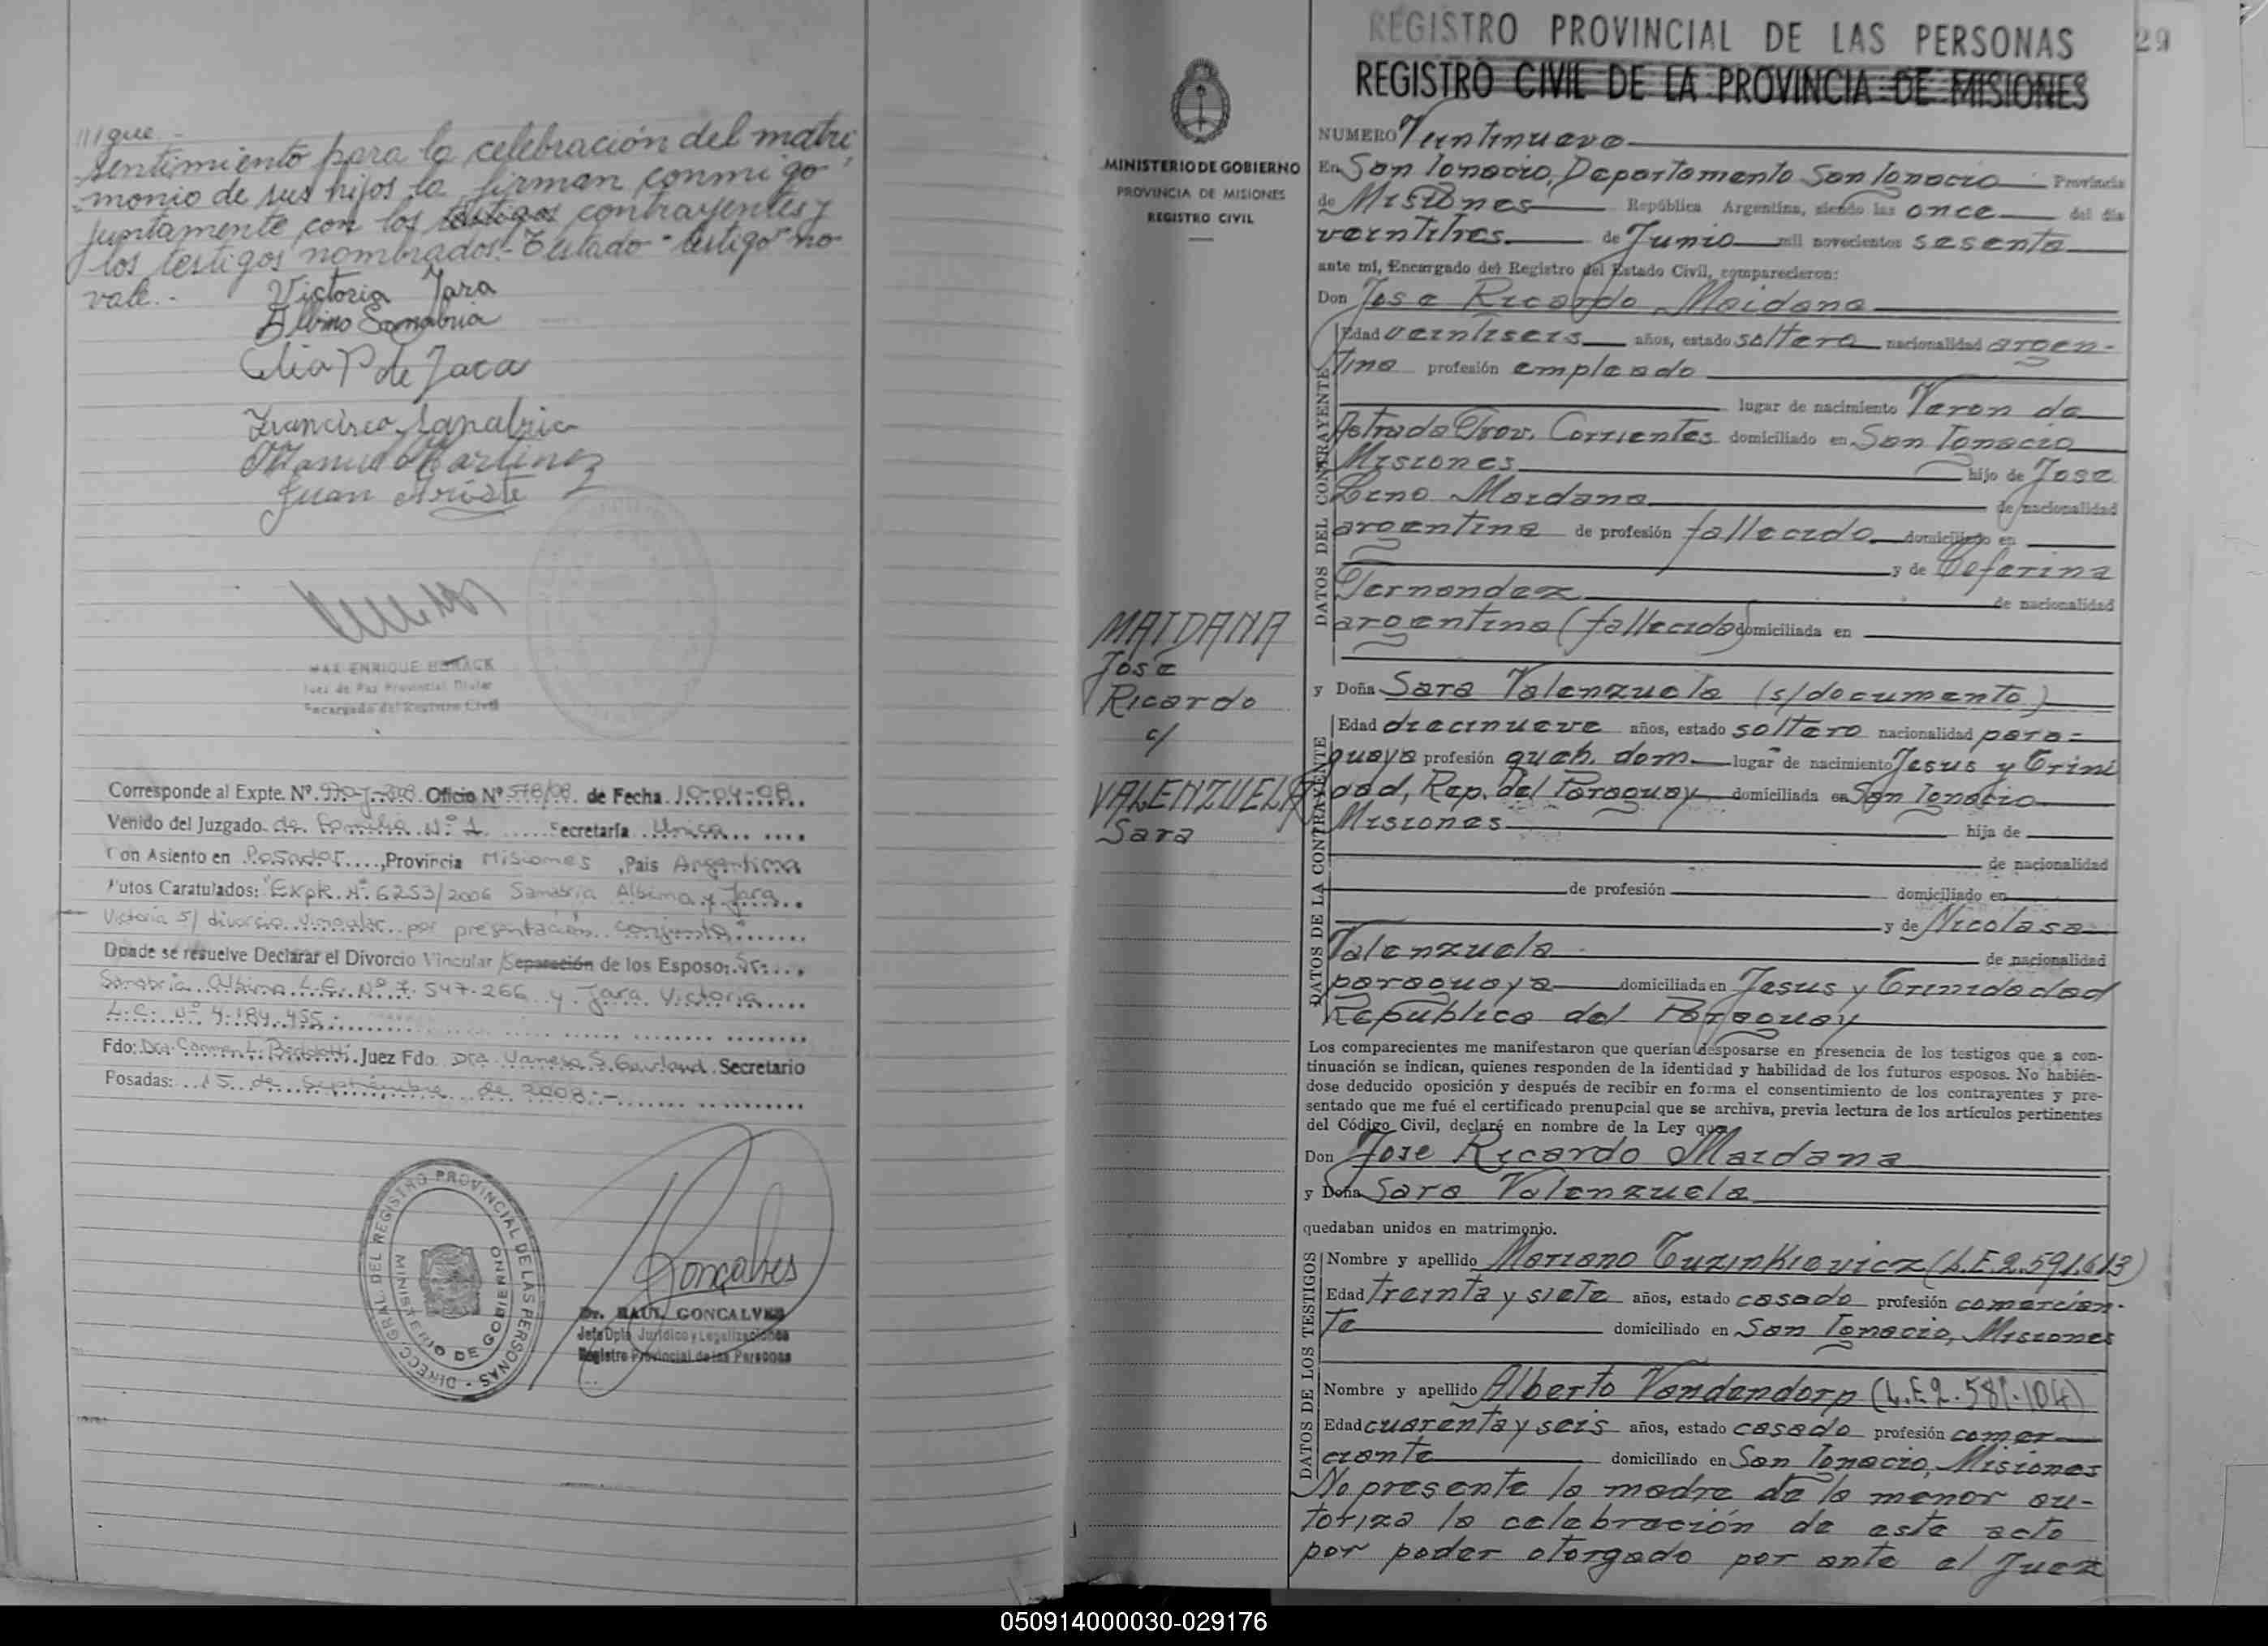 ///que.-
sentimiento para la celebración del matri
monio de sus hijos la firman conmigo
juntamente con los testigos contrayentes y
los testigos nombrados.- Testado "testigo" no
vale.-
Victoria Jara
Albino Sanabria
Celia P de Jara
Francisco Sanabria
Manuel Martinez
Juan
MAX ENRIQUE
Juez de Paz Provincial Titular
Encargado del Registro Civil
Corresponde al Expte. Nº 970-J-2008 Oficio Nº 578/08 de Fecha 10-04-08
Venido del Juzgado de Familia Nº 1 Secretaría Unica
Con Asiento en Posadas, Provincia Misiones, Pais Argentina
Autos Caratulados: "Expte. Nº 6253/2006 Sanabria Albino y Jara
Victoria S/ divorcio vincular por presentación conjunta"
Donde se resuelve Declarar el Divorcio Vincular /Separación de los Esposos: Sr.
Sanabria Albino L.E. Nº 7.547.266 y Jara Victoria
L.C. Nº 4.184.455
Fdo: Dra. Carmen L. Juez Fdo. Dra. Vanesa S. Secretario
Posadas: 15 de Septiembre de 2008.-
DIRECC. GRAL. DEL REGISTRO PROVINCIAL DE LAS PERSONAS -
MINISTERIO DE GOBIERNO
Gonçalves
Dr. RAUL GONCALVES
Jefe Dpto Jurídico y Legalizaciones
Registro Provincial de las Personas
MINISTERIO DE GOBIERNO
PROVINCIA DE MISIONES
REGISTRO CIVIL
MAIDANA
José
Ricardo
c/
VALENZUELA
Sara
29
REGISTRO PROVINCIAL DE LAS PERSONAS
REGISTRO CIVIL DE LA PROVINCIA DE MISIONES
NUMERO Veintinueve
En San Ignacio, Departamento San Ignacio Provincia
de Misiones República Argentina, siendo las once del día
veintitres de Junio mil novecientos sesenta
ante mi, Encargado del Registro del Estado Civil, comparecieron:
Don Jose Ricardo Maidana
DATOS DEL CONTRAYENTE
Edad veintiseis años, estado soltero nacionalidad argen-
tina profesión empleado
lugar de nacimiento Veron de
Astrada Prov. Corrientes domiciliado en San Ignacio
Misiones hijo de Jose
Leno Maidana de nacionalidad
argentina de profesión fallecido domiciliado en
y de Ceferina
Fernandez de nacionalidad
argentina (fallecida) domiciliada en
y Doña Sara Valenzuela (s/documento)
DATOS DE LA CONTRAYENTE
Edad diecinueve años, estado soltera nacionalidad para=
guaya profesión queh. dom. lugar de nacimiento Jesus y Trini
dad, Rep. del Paraguay domiciliada en San Ignacio
Misiones hija de
de nacionalidad
de profesión domiciliado en
y de Nicolasa
Valenzuela de nacionalidad
paraguaya domiciliada en Jesus y Trinidadad
Republica del Paraguay
Los comparecientes me manifestaron que querían desposarse en presencia de los testigos que a con-
tinuación se indican, quienes responden de la identidad y habilidad de los futuros esposos. No habién-
dose deducido oposición y después de recibir en forma el consentimiento de los contrayentes y pre-
sentado que me fué el certificado prenupcial que se archiva, previa lectura de los artículos pertinentes
del Código Civil, declaré en nombre de la Ley que
Don Jose Ricardo Maidana
y Doña Sara Valenzuela
quedaban unidos en matrimonio.
DATOS DE LOS TESTIGOS
Nombre y apellido Mariano Tuzinkievicz (L.E.2.591.613)
Edad treinta y siete años, estado casado profesión comercian-
te domiciliado en San Ignacio, Misiones
Nombre y apellido Alberto Vandendorp (L.E.2.581.104)
Edad cuarenta y seis años, estado casado profesión comer
ciante domiciliado en San Ignacio, Misiones
No presente la madre de la menor au-
toriza la celebración de este acto
por poder otorgado por ante el Juez
050914000030-029176